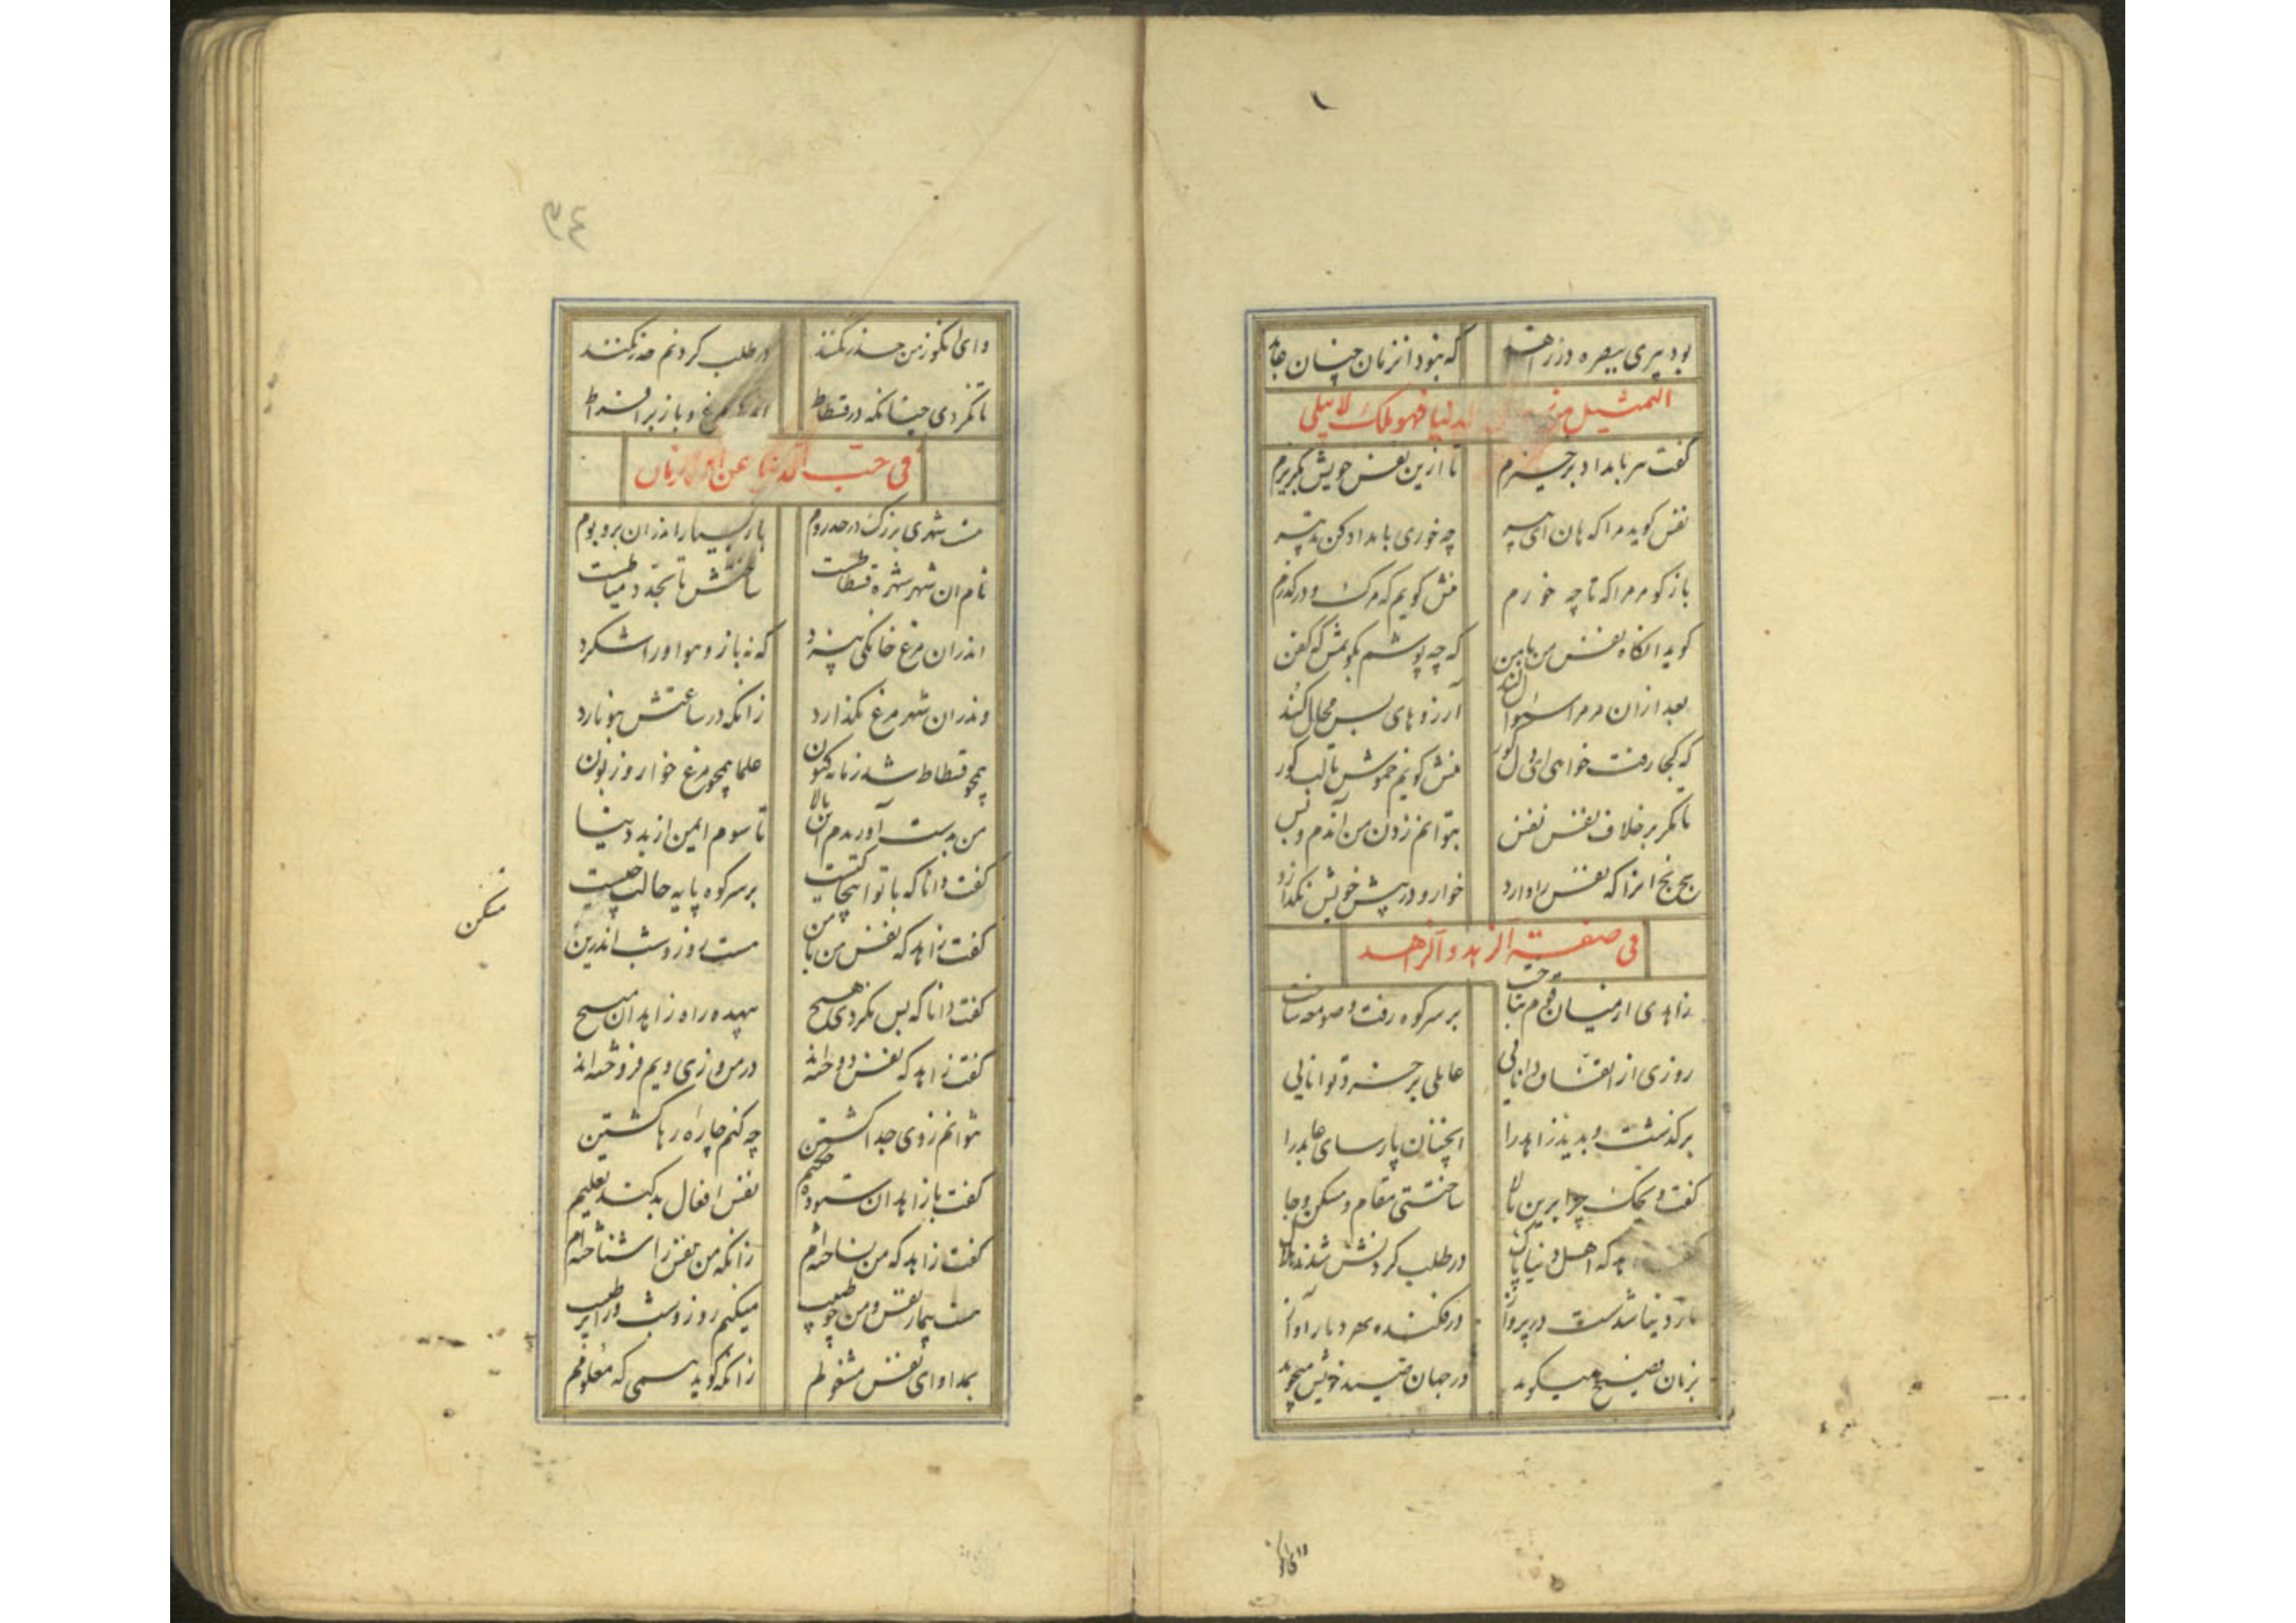 بود پیری ببصره در زاهد که نبود انزمان چنان عابد
التمثیل من الدنیا فهو ملک لا یبلی
گفت هر بامداد برخیزم تا ازین نفس خویش بگریزم
نفس کوید مرا که هان ای پیر چه خوری بامداد کن تدبیر
باز کو مر مرا که تا چه خورم منش کویم که مرک و درکذرم
کوید آنکاه نفس من با من که چه پوشم بکویمش که کفن
بعد ازان مر مرا سؤال کند آرزوهای بس محال کند
که کجا رفت خواهی ای دل کور منش کویم خموش تا لب کور
تا مکر بر خلاف نفس نفس بتوانم زدن من آندم و بس
بخ بخ انرا که نفس را دارد خوار و در پیش خویش نکذارد
فی صفة الزهد و الزاهد
زاهدی از میان قوم بتاخت بر سر کوه رفت و صومعه ساخت
روزی از اتفاق دانایی عاملی پر خرد توانایی
برکذشت و بدید زاهد را انچنان پارسای عابد را
گفت ویحک چرا برین بالا ساختستی مقام و مسکن و جا
گفت زاهد که اهل دنیا پاک در طلب کردنش شدند هلاک
باز دینا شدست در پرواز در فکنده بهر دیار آواز
بزبان فصیح میکوید در جهان صید خویش میجوید
وای انکو
٣٤
وای انکو ز من حذر نکند در طلب کردنم حذر نکند
تا نکردی چنانکه در قسطاط اندکی مرغ و باز بر افراط
فی حب الدنیا
هست شهری بزرک در حد روم باز بسیار اندران بر و بوم
نام ان شهر شهره قسطاطست ساحتش تا بحد دمیاطست
اندران مرغ خانکی نپرد که نه باز و هوا ورا شکرد
وندران شهر مرغ نکذارد زانکه در ساعتش بیوبارد
همچو قسطاط شد زمانه کنون علما همچو مرغ خوار و زبون
من بدست آوریدم این بالا تا شوم ایمن از بد دینا
گفت دانا که با تو اینجا کیست بر سر کوه پایه حالت چیست
گفت زاهد که نفس من با من هست روز و شب اندرین
مسکن
گفت دانا که پس نکردی هیچ بیهده راه زاهدان مبسیچ
گفت زاهد که نفس دوخته‌اند در من و زی ویم فروخته‌اند
نتوانم ز وی جدا کشتن چه کنم چاره رها کشتن
گفت با زاهد ان ستوده حکیم نفس افعال بد کند تعلیم
گفت زاهد که من بساخته‌ام زانکه من نفس را شناخته‌ام
هست بیمار نفس و من چو طبیب میکنم روز و شب ورا ترتیب
بمداوای نفس مشغولم زانکه کوید همی که معلولم